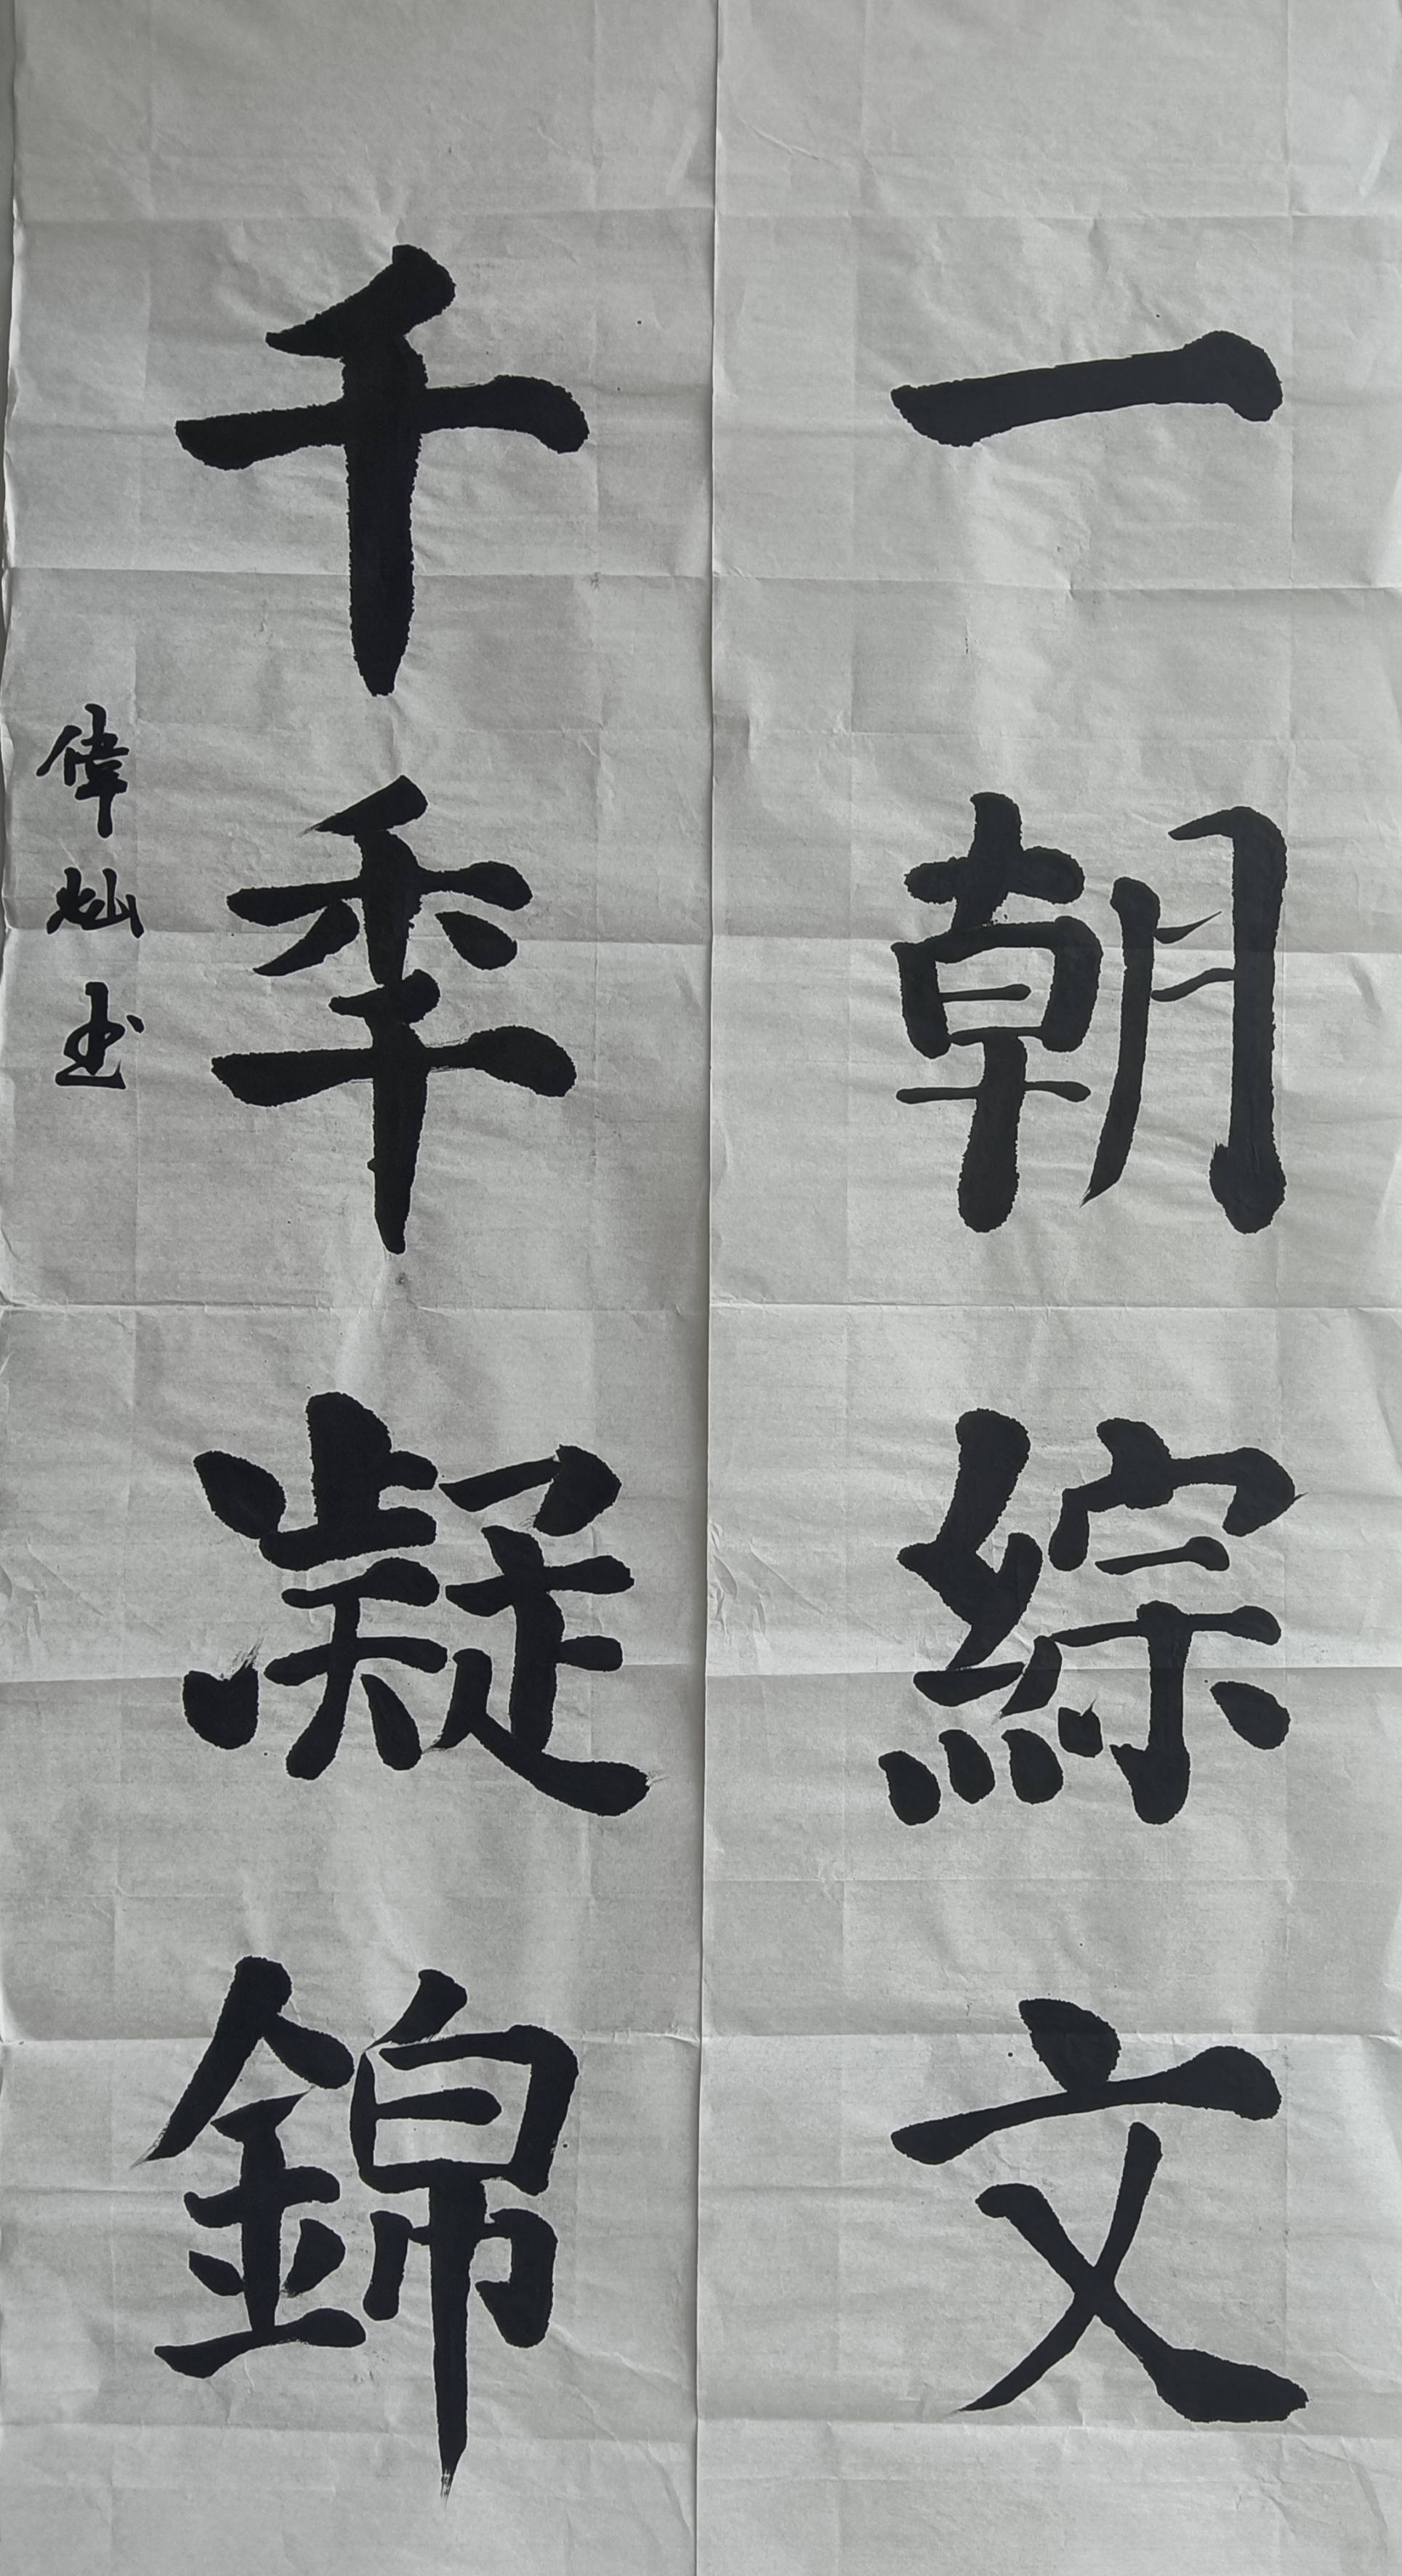 一朝綜文
千秊凝錦
偉灿书